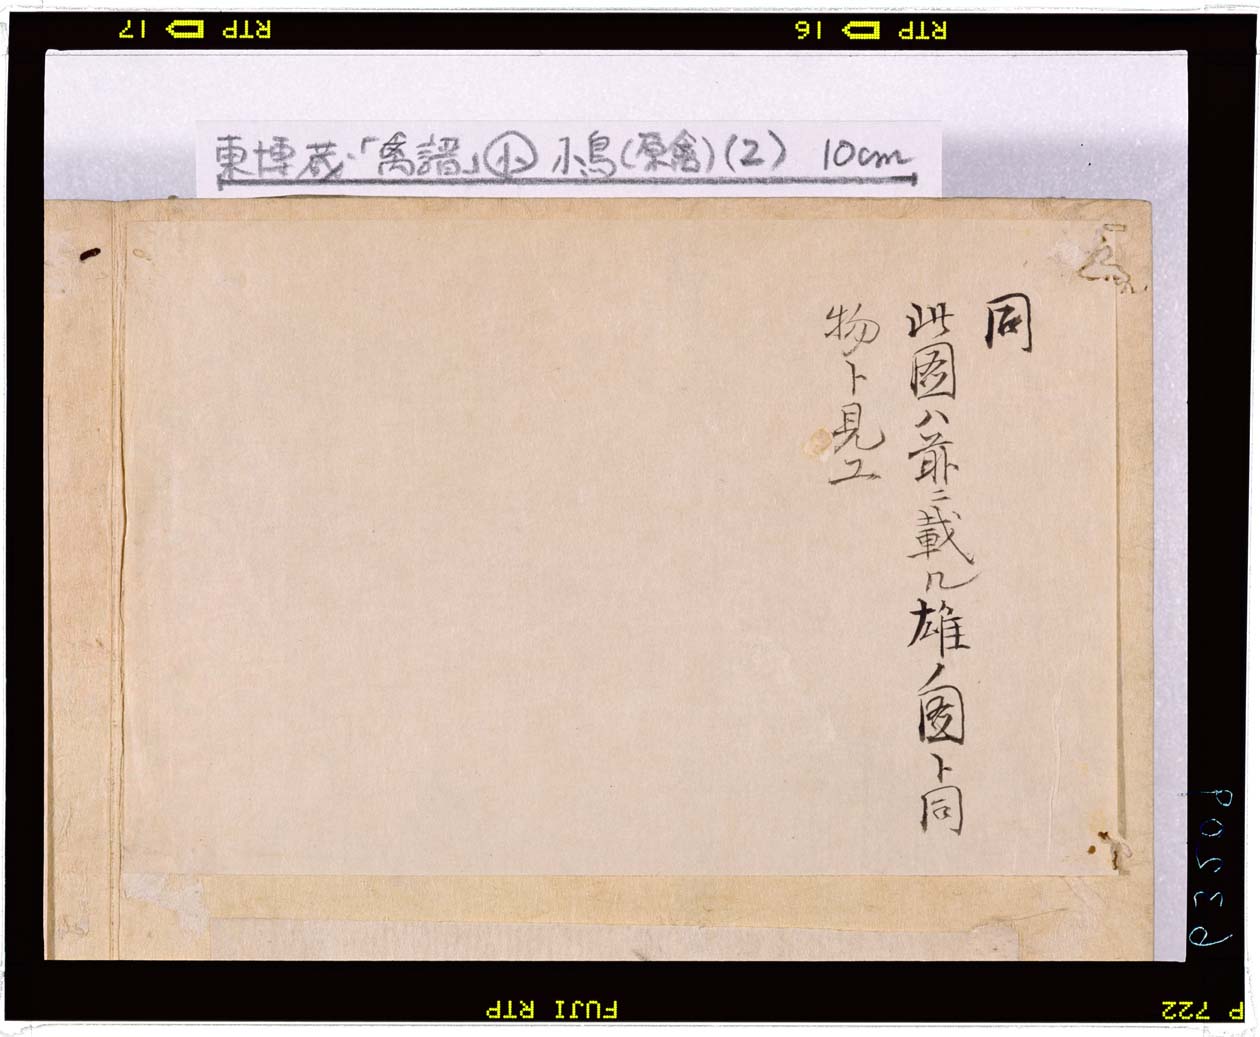 東博蔵・「禽譜」㊤ 小鳥(原禽)(2) 10cm
同
此圖ハ前ニ載ル雄ノ圖ト同
物ト見エ
RTP 17
RTP 16
FUJI RTP
P 722
P350d